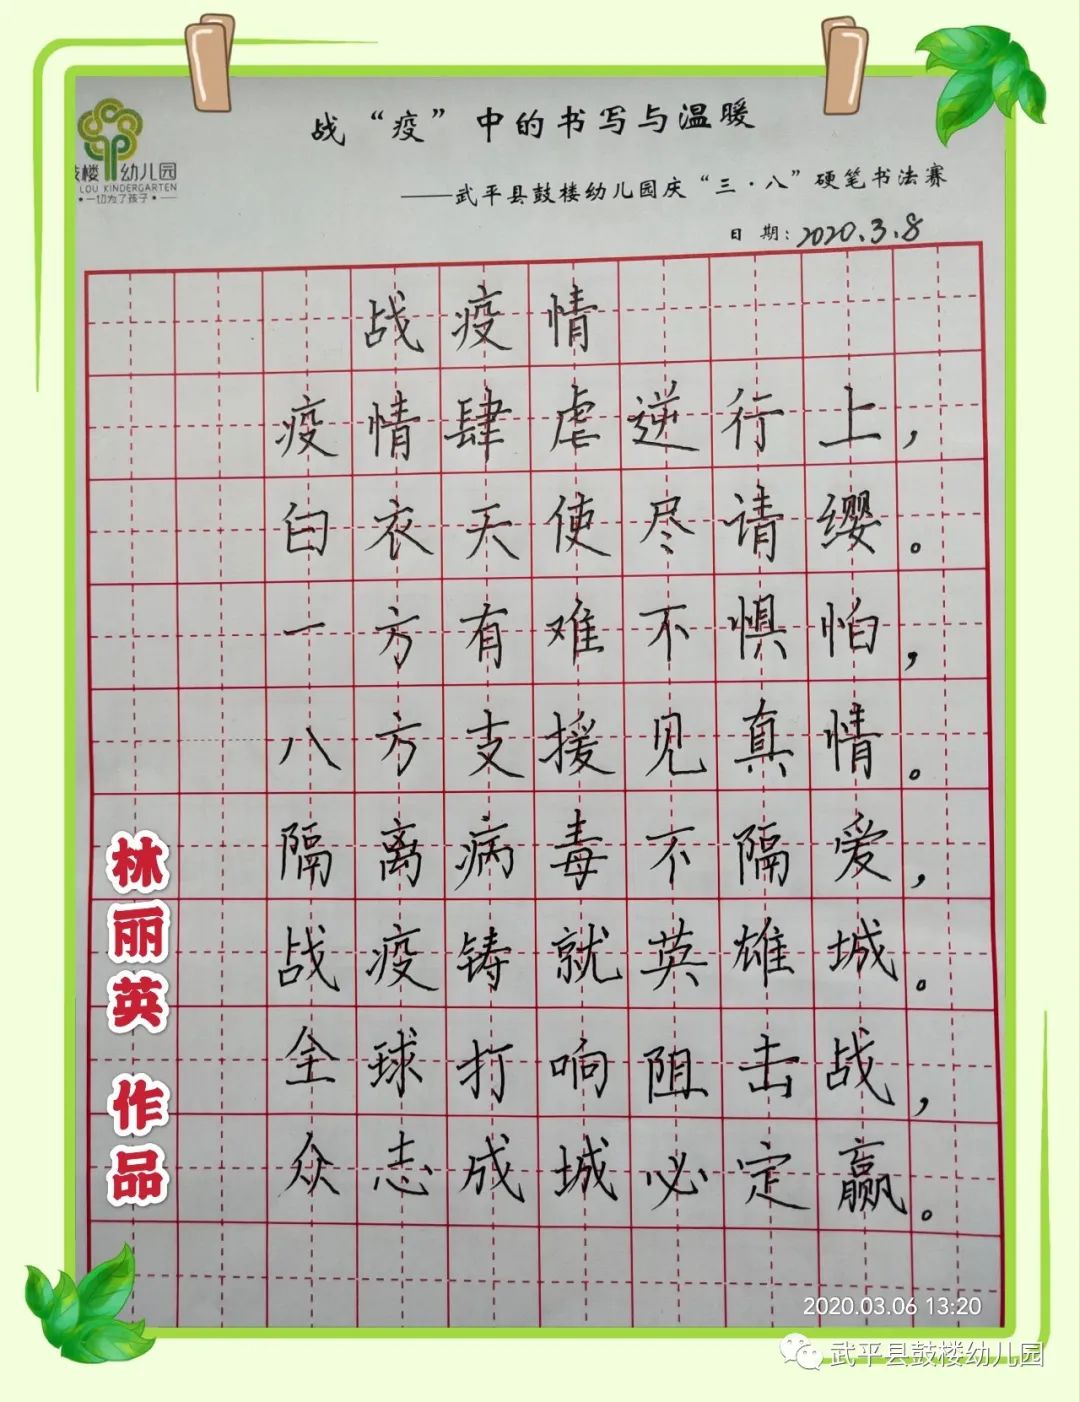 战“疫”中的书写与温暖
鼓楼 幼儿园
LOU KINDERGARTEN
•一切为了孩子•
——武平县鼓楼幼儿园庆“三·八”硬笔书法赛
日 期：2020.3.8
战疫情
疫情肆虐逆行上，
白衣天使尽请缨。
一方有难不惧怕，
八方支援见真情。
隔离病毒不隔爱，
战疫铸就英雄城。
全球打响阻击战，
众志成城必定赢。
林丽英 作品
2020.03.06 13:20
武平县鼓楼幼儿园